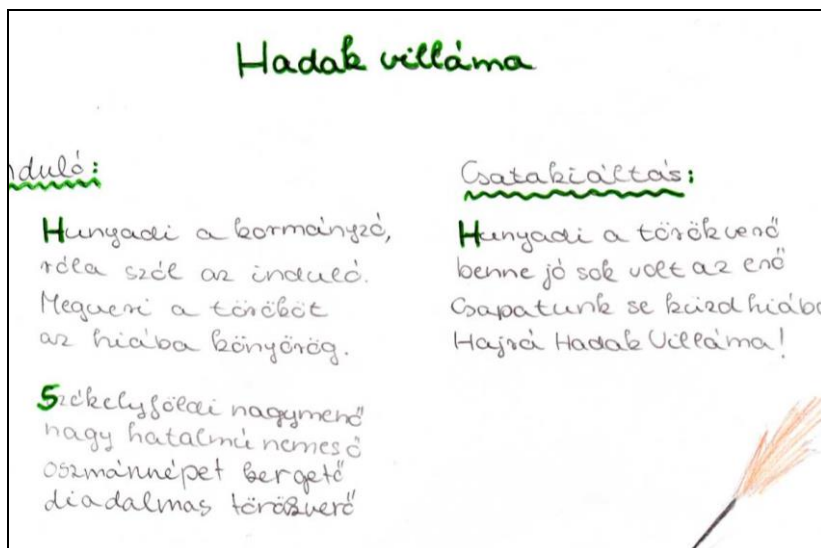 Hadak villáma
nduló:
Hunyadi a kormányzó,
róla szól az induló.
Megveri a törököt
az hiába könyörög.
Székelyföldi nagymenő
nagy hatalmú nemes ő
oszmánnépet kergető
diadalmas törökverő
Csatakiáltás:
Hunyadi a törökverő
benne jó sok volt az erő
Csapatunk se küzd hiába
Hajrá Hadak Villáma!